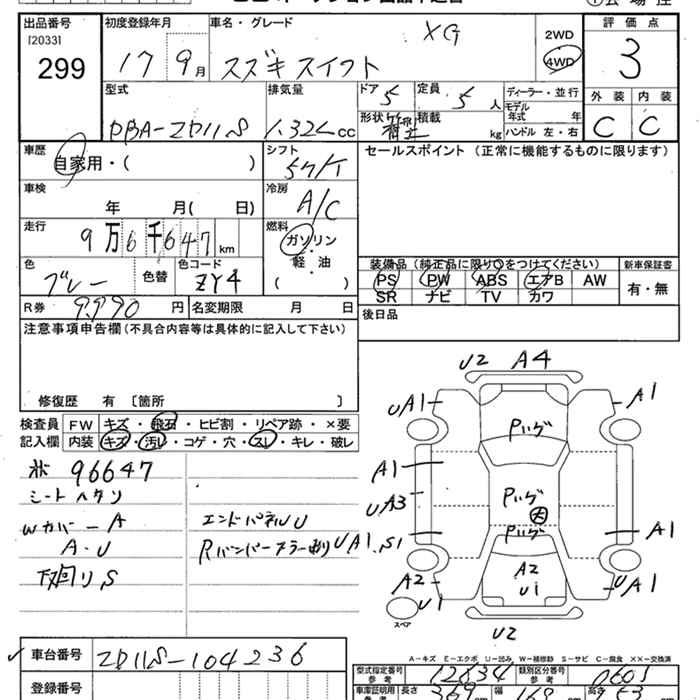 出品番号 初度登録年月 車名・グレード XG 2WD 評価点
[2033]
299 17 9月 スズキスイフト 4WD 3
型式 排気量 ドア 5 定員 5人 ディーラー・並行 外装 内装
DBA-ZD11S 1.32L cc 形状 積載 kg モデル年式 年 C C
ハンドル 左・右
車歴 自家用・( ) シフト セールスポイント (正常に機能するものに限ります)
車検 年 月( 日) 冷房 A/C
走行 9万6千647km 燃料 ガソリン・軽・油 ( )
色 色替 色コード ZY4 装備品 (純正品に限り○をつけてください) 新車保証書
PS PW ABS エアB AW 有・無
SR ナビ TV カワ
R券 9,990円 名変期限 月 日 後日品
注意事項申告欄 (不具合内容等は具体的に記入して下さい)
修復歴 有 [箇所 ]
検査員 FW キズ・飛石・ヒビ割・リペア跡・×要
記入欄 内装 キズ・汚レ・コゲ・穴・スレ・キレ・破レ
96647
Wカバー A
A.U
下回りS
エンドパネルU
U2 A4
UA1 A1
A1
UA3
UA1.S1 A1
A2 A2 UA1
U1 U1
スペア
U2
A-キズ E-エクボ U-凹み W-補修跡 S-サビ C-腐食 XX-交換済
車台番号 ZD11S-104236
登録番号
型式指定番号 参考 12834 類別区分番号 参考 0603
車庫証明用 参考 長さ 369 幅 168 高さ